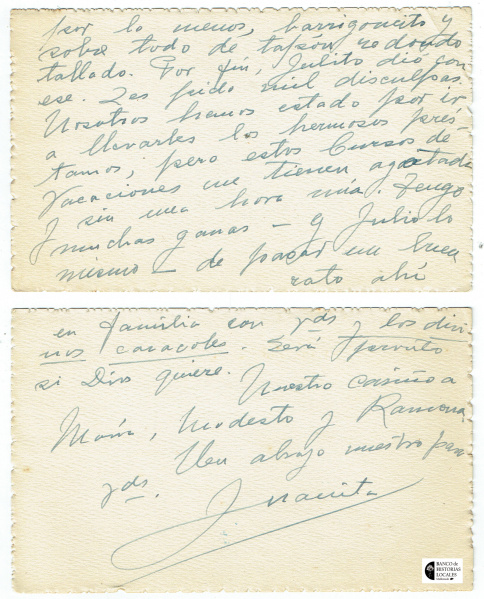 por lo menos, barrigoncito y
sobre todo de tapón redondo
tallado. Por fin, Julito dió con
ese. Les pido mil disculpas.
Nosotros hemos estado por ir
a llevarles los hermosos prés-
tamos, pero estos Cursos de
Vacaciones me tienen agotada
y sin una hora mía. Tengo
muchas ganas - y Julio lo
mismo - de pasar un buen
rato ahí
en família con Vds y los divi
nos caracoles. Será pronto
si Dios quiere.
Nuestro cariño a
María, Modesto y Ramona
Un abrazo nuestro para
Vds.
Juanita
BANCO de
HISTORIAS
LOCALES